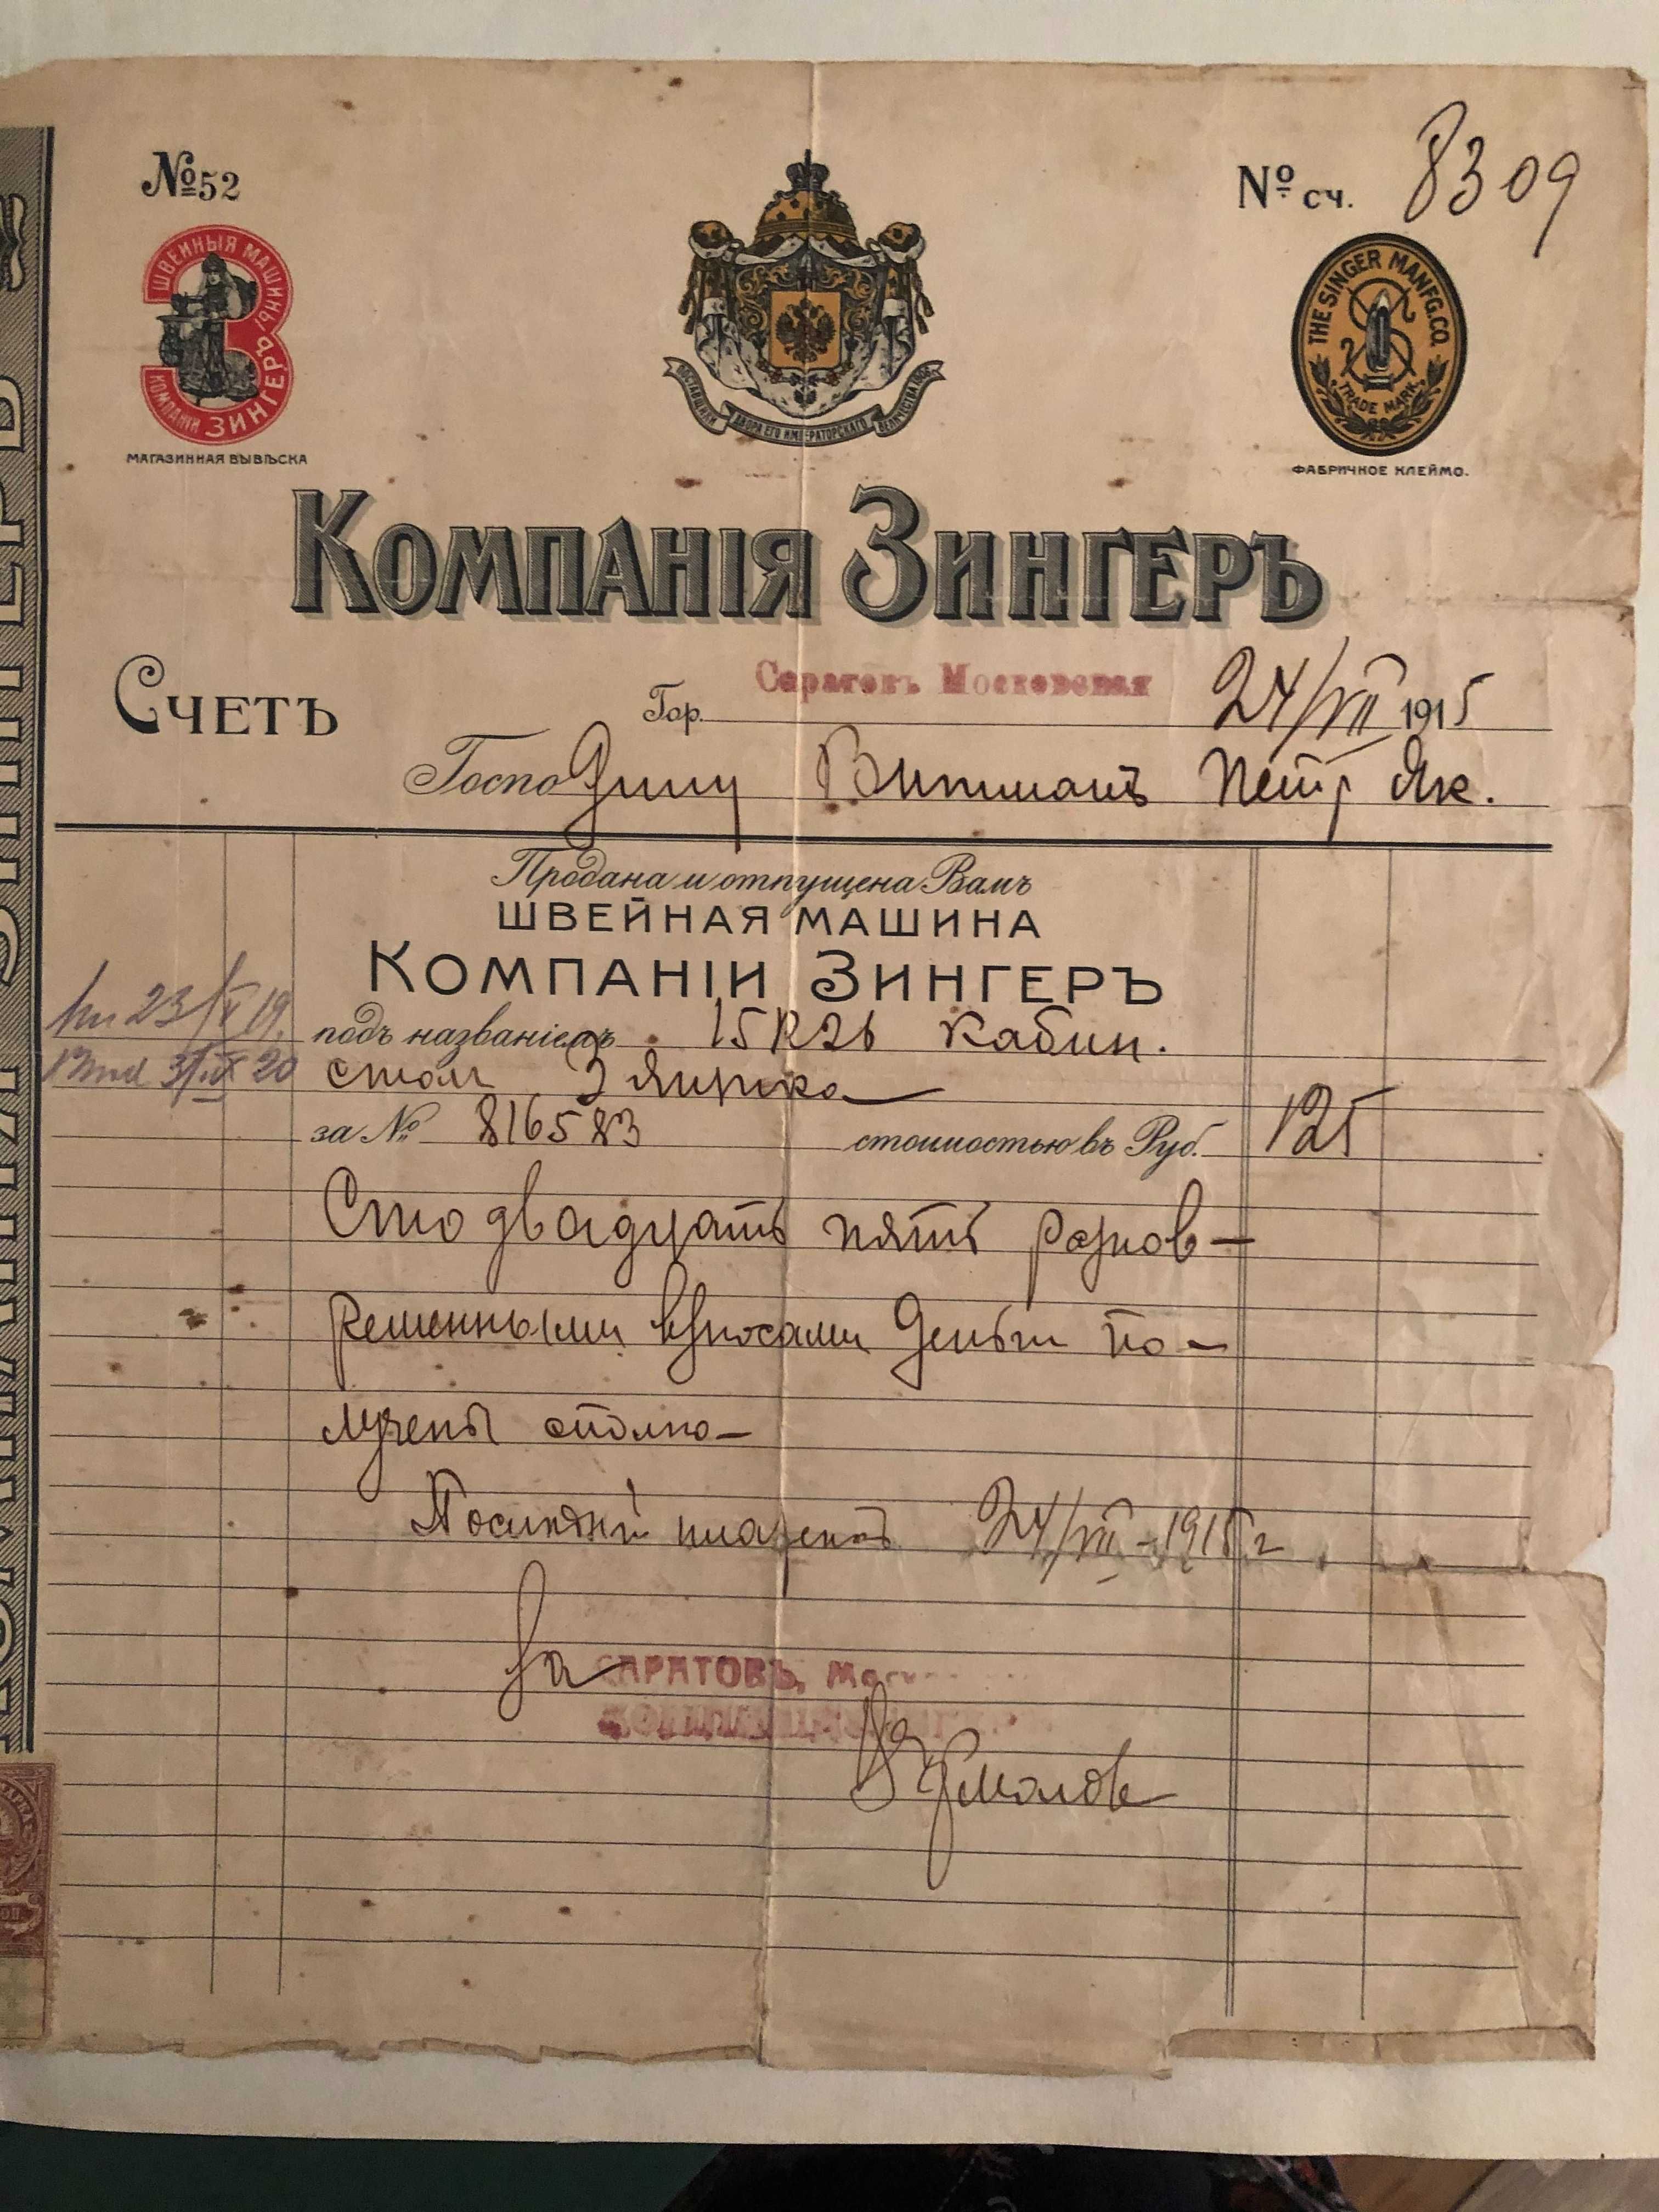 №52
№ сч. 8309
ШВЕЙНЫЯ МАШИНЫ
КОМПАНІИ ЗИНГЕРЪ
МАГАЗИННАЯ ВЫВѢСКА
ПОСТАВЩИКИ ДВОРА ЕГО ИМПЕРАТОРСКАГО ВЕЛИЧЕСТВА
THE SINGER MANFG. CO.
TRADE MARK
ФАБРИЧНОЕ КЛЕЙМО.
КОМПАНІЯ ЗИНГЕРЪ
СЧЕТЪ
Гор. Саратовъ Московская 24/VII 1915
Господину Витманъ Петр Як.
Продана и отпущена Вамъ
ШВЕЙНАЯ МАШИНА
КОМПАНІИ ЗИНГЕРЪ
подъ названіемъ 15К26 кабин.
стол 3 ящика
за № 816583 стоимостью въ Руб. 125
Сто двадцать пять разнов-
ременными взносами Деньги по-
лучены сполна-
Последній платежъ 24/VII - 1915 г
За САРАТОВЪ, Моск
Ермолов